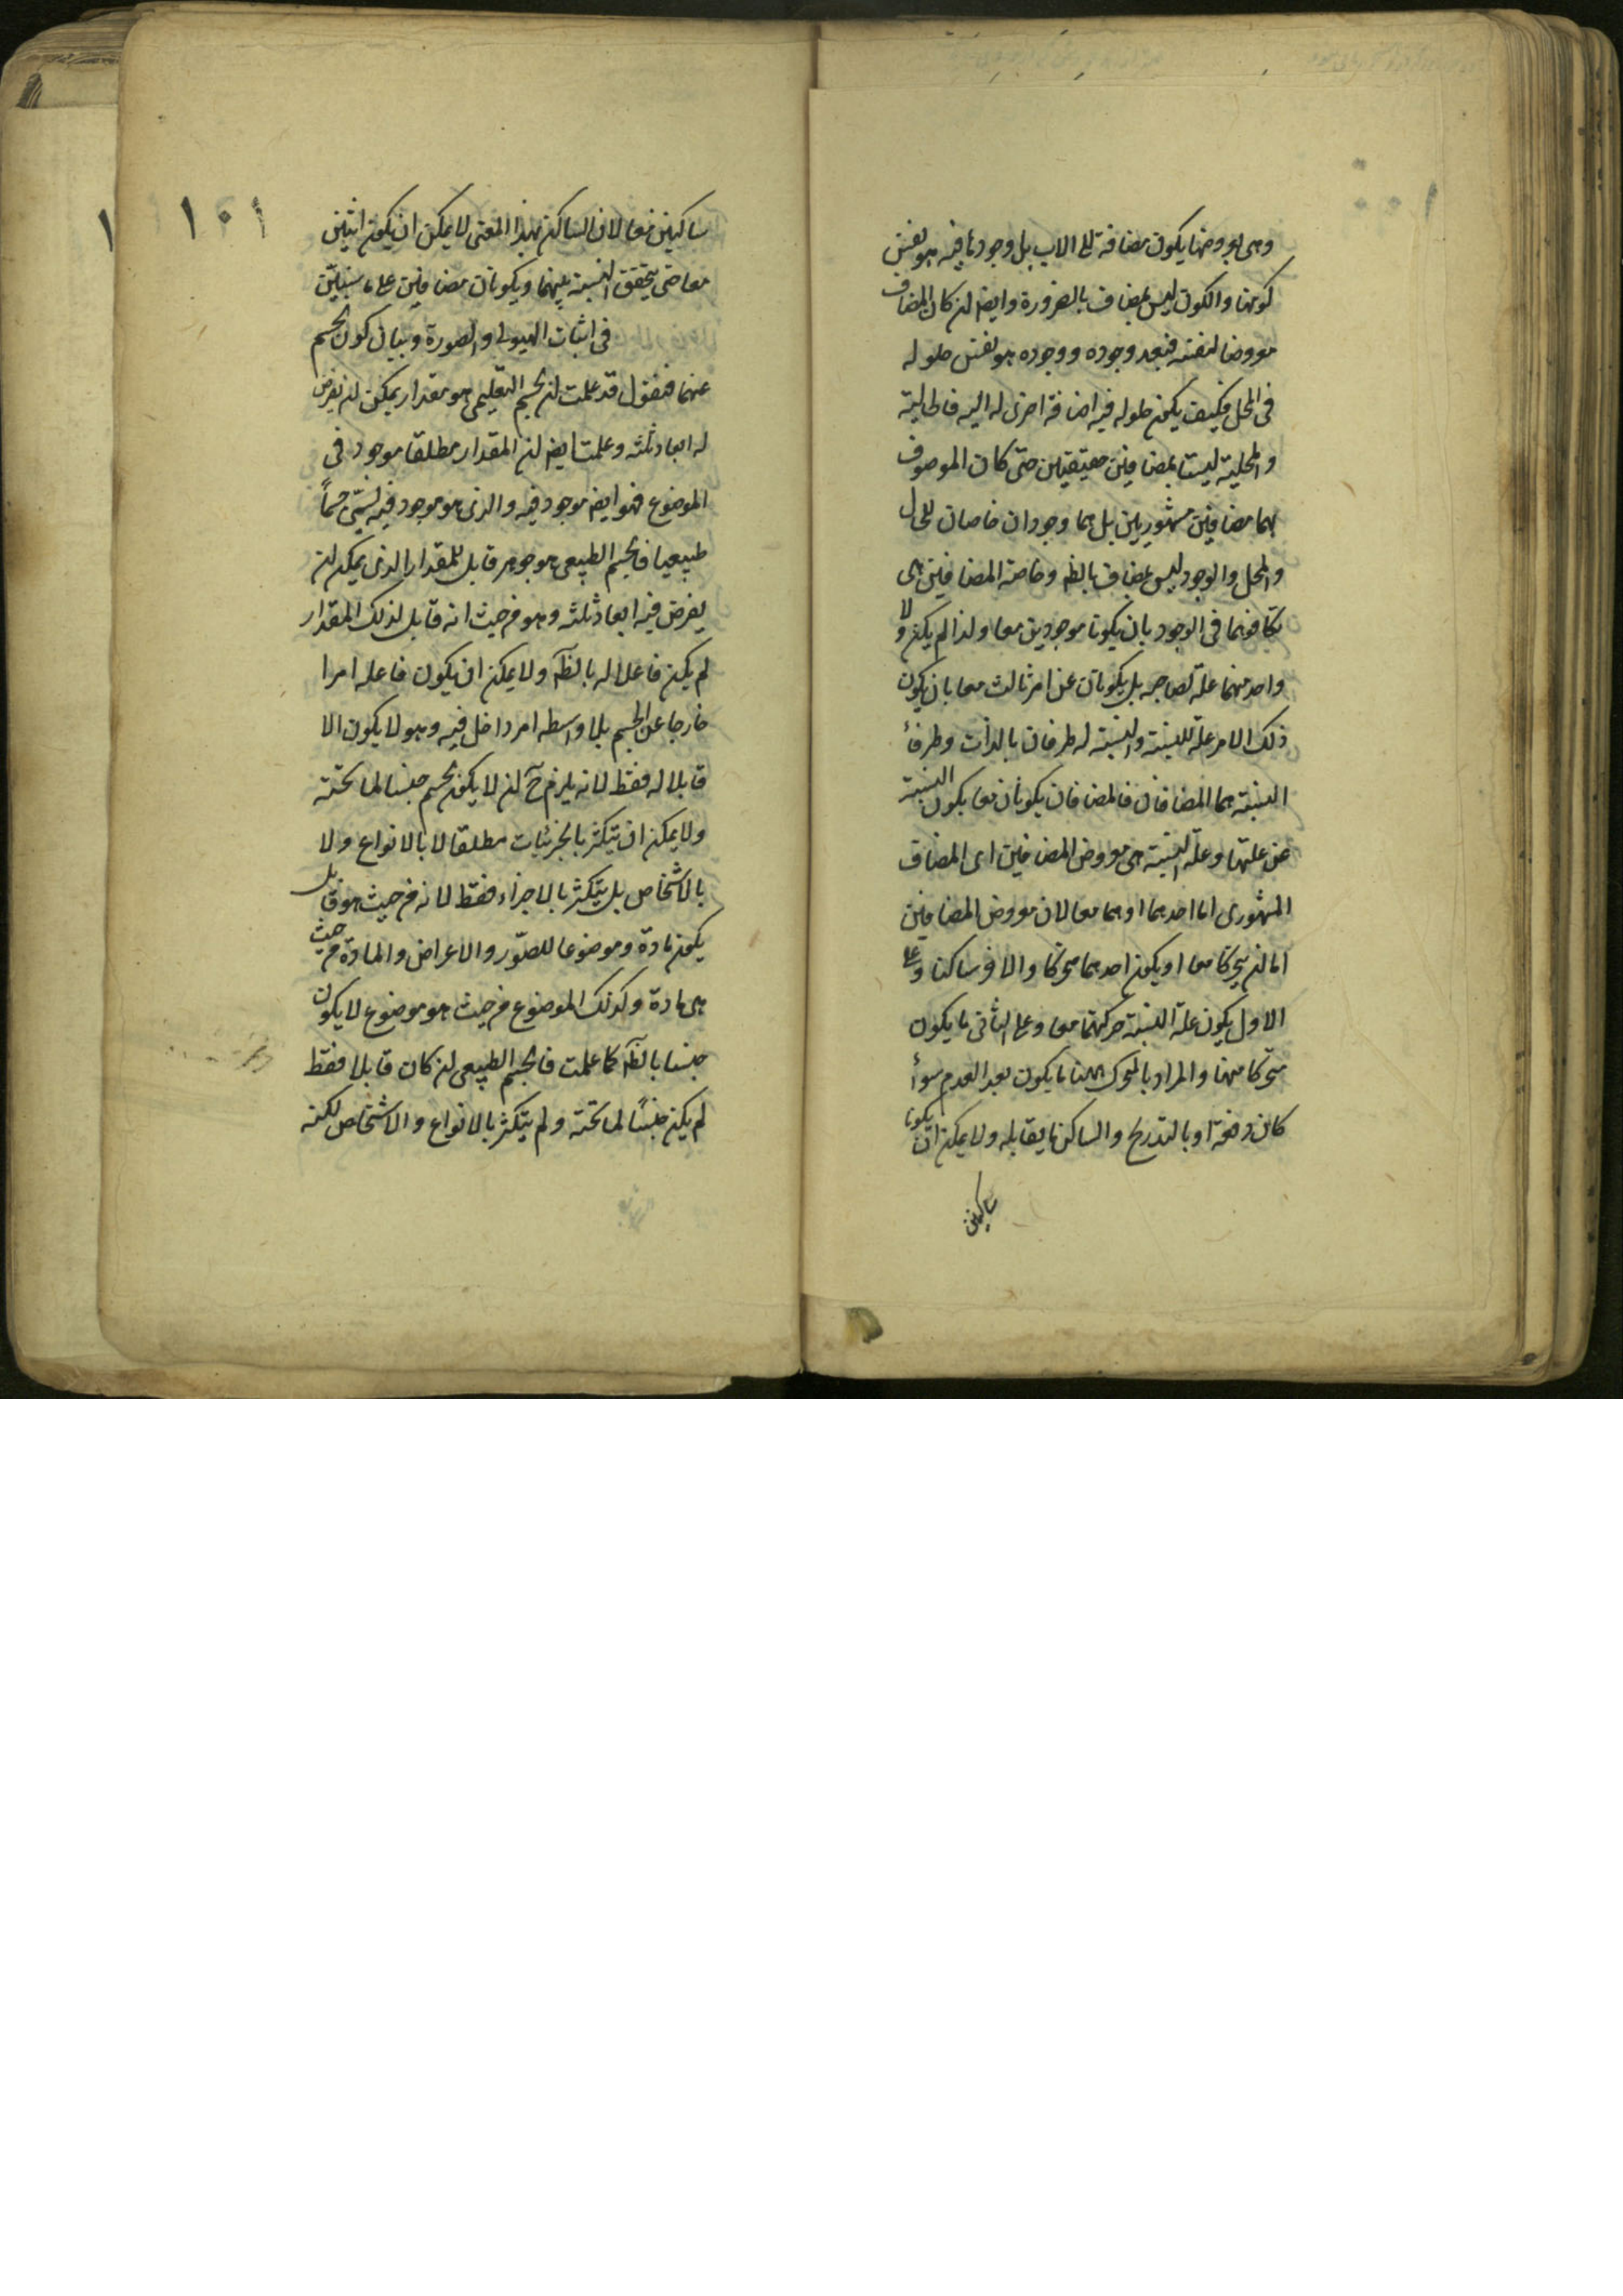 وهى بعروضها يكون مضافة الى الاب بل وجودها فيه هو نفس
كونها والكون ليس بمضاف بالضرورة وايضا ان كان المضاف
معروضا لنفسه فبعد وجوده ووجوده هو نفس حلوله
فى المحل فكيف يكون حلوله فيه اضافة اخرى له اليه فالحالية
والمحلية ليستا بمضافين حقيقيين حتى كان الموصوف
بهما مضافين مشهوريين بل هما وجودان خاصان للحال
والمحل والوجود ليس بمضاف بالظه وخاصة المضافين هى
تكافوهما فى الوجود بان يكونا موجودين معا ولذا لم يكن ولا
واحد منهما علة لصاحبه بل يكونان عن امر ثالث معا بان يكون
ذلك الامر علة للنسبة والنسبة له طرفان بالذات وطرفا
النسبة هما المضافان فالمضافان يكونان معا بكون النسبة
عن علتها وعلة النسبة هى معروض المضافين اى المضاف
المشهورى اما احدهما او هما معا لان معروض المضافين
اما ان يتحركا معا او يكون احدهما متحركا والاخر ساكنا وعلى
الاول يكون علة النسبة حركتهما معا وعلى الثانى ما يكون
متحركا منهما والمراد بالمتحرك ههنا ما يكون بعد العدم سواء
كان دفعة او بالتدريج والساكن ما يقابله ولا يمكن ان يكونا
ساكنين
١٠١
ساكنين معا لان الساكن بهذا المعنى لا يمكن ان يكون اثنين
معا حتى يتحقق النسبة بينهما ويكونان مضافين على ما سنبين
فى اثبات الهيولى والصورة وبيان كون الجسم
عنهما فنقول قد علمت ان الجسم التعليمى هو مقدار يمكن ان يفرض
له ابعاد ثلثة وعلمت ايضا ان المقدار مطلقا موجود فى
الموضوع فهو ايضا موجود فيه والذى هو موجود فيه يسمى جسما
طبيعيا فالجسم الطبيعى هو جوهر قابل للمقدار الذى يمكن ان
يفرض فيه ابعاد ثلثة وهو من حيث انه قابل لذلك المقدار
لم يكن فاعلا له بالظه ولا يمكن ان يكون فاعله امرا
خارجا عن الجسم بلا واسطه امر داخل فيه وهو لا يكون الا
قابلا له فقط لانه يلزم ح ان لا يكون الجسم جنسا لما تحته
ولا يمكن ان يتكثر بالجزئيات مطلقا لا بالانواع ولا
بالاشخاص بل يتكثر بالاجزاء فقط لانه من حيث هو قابل
يكون مادة وموضوعا للصور والاعراض والمادة من حيث
هى مادة وكذلك الموضوع من حيث هو موضوع لا يكون
جنسا بالظه كما علمت فالجسم الطبيعى ان كان قابلا فقط
لم يكن جنسا لما تحته ولم يتكثر بالانواع والاشخاص لكنه